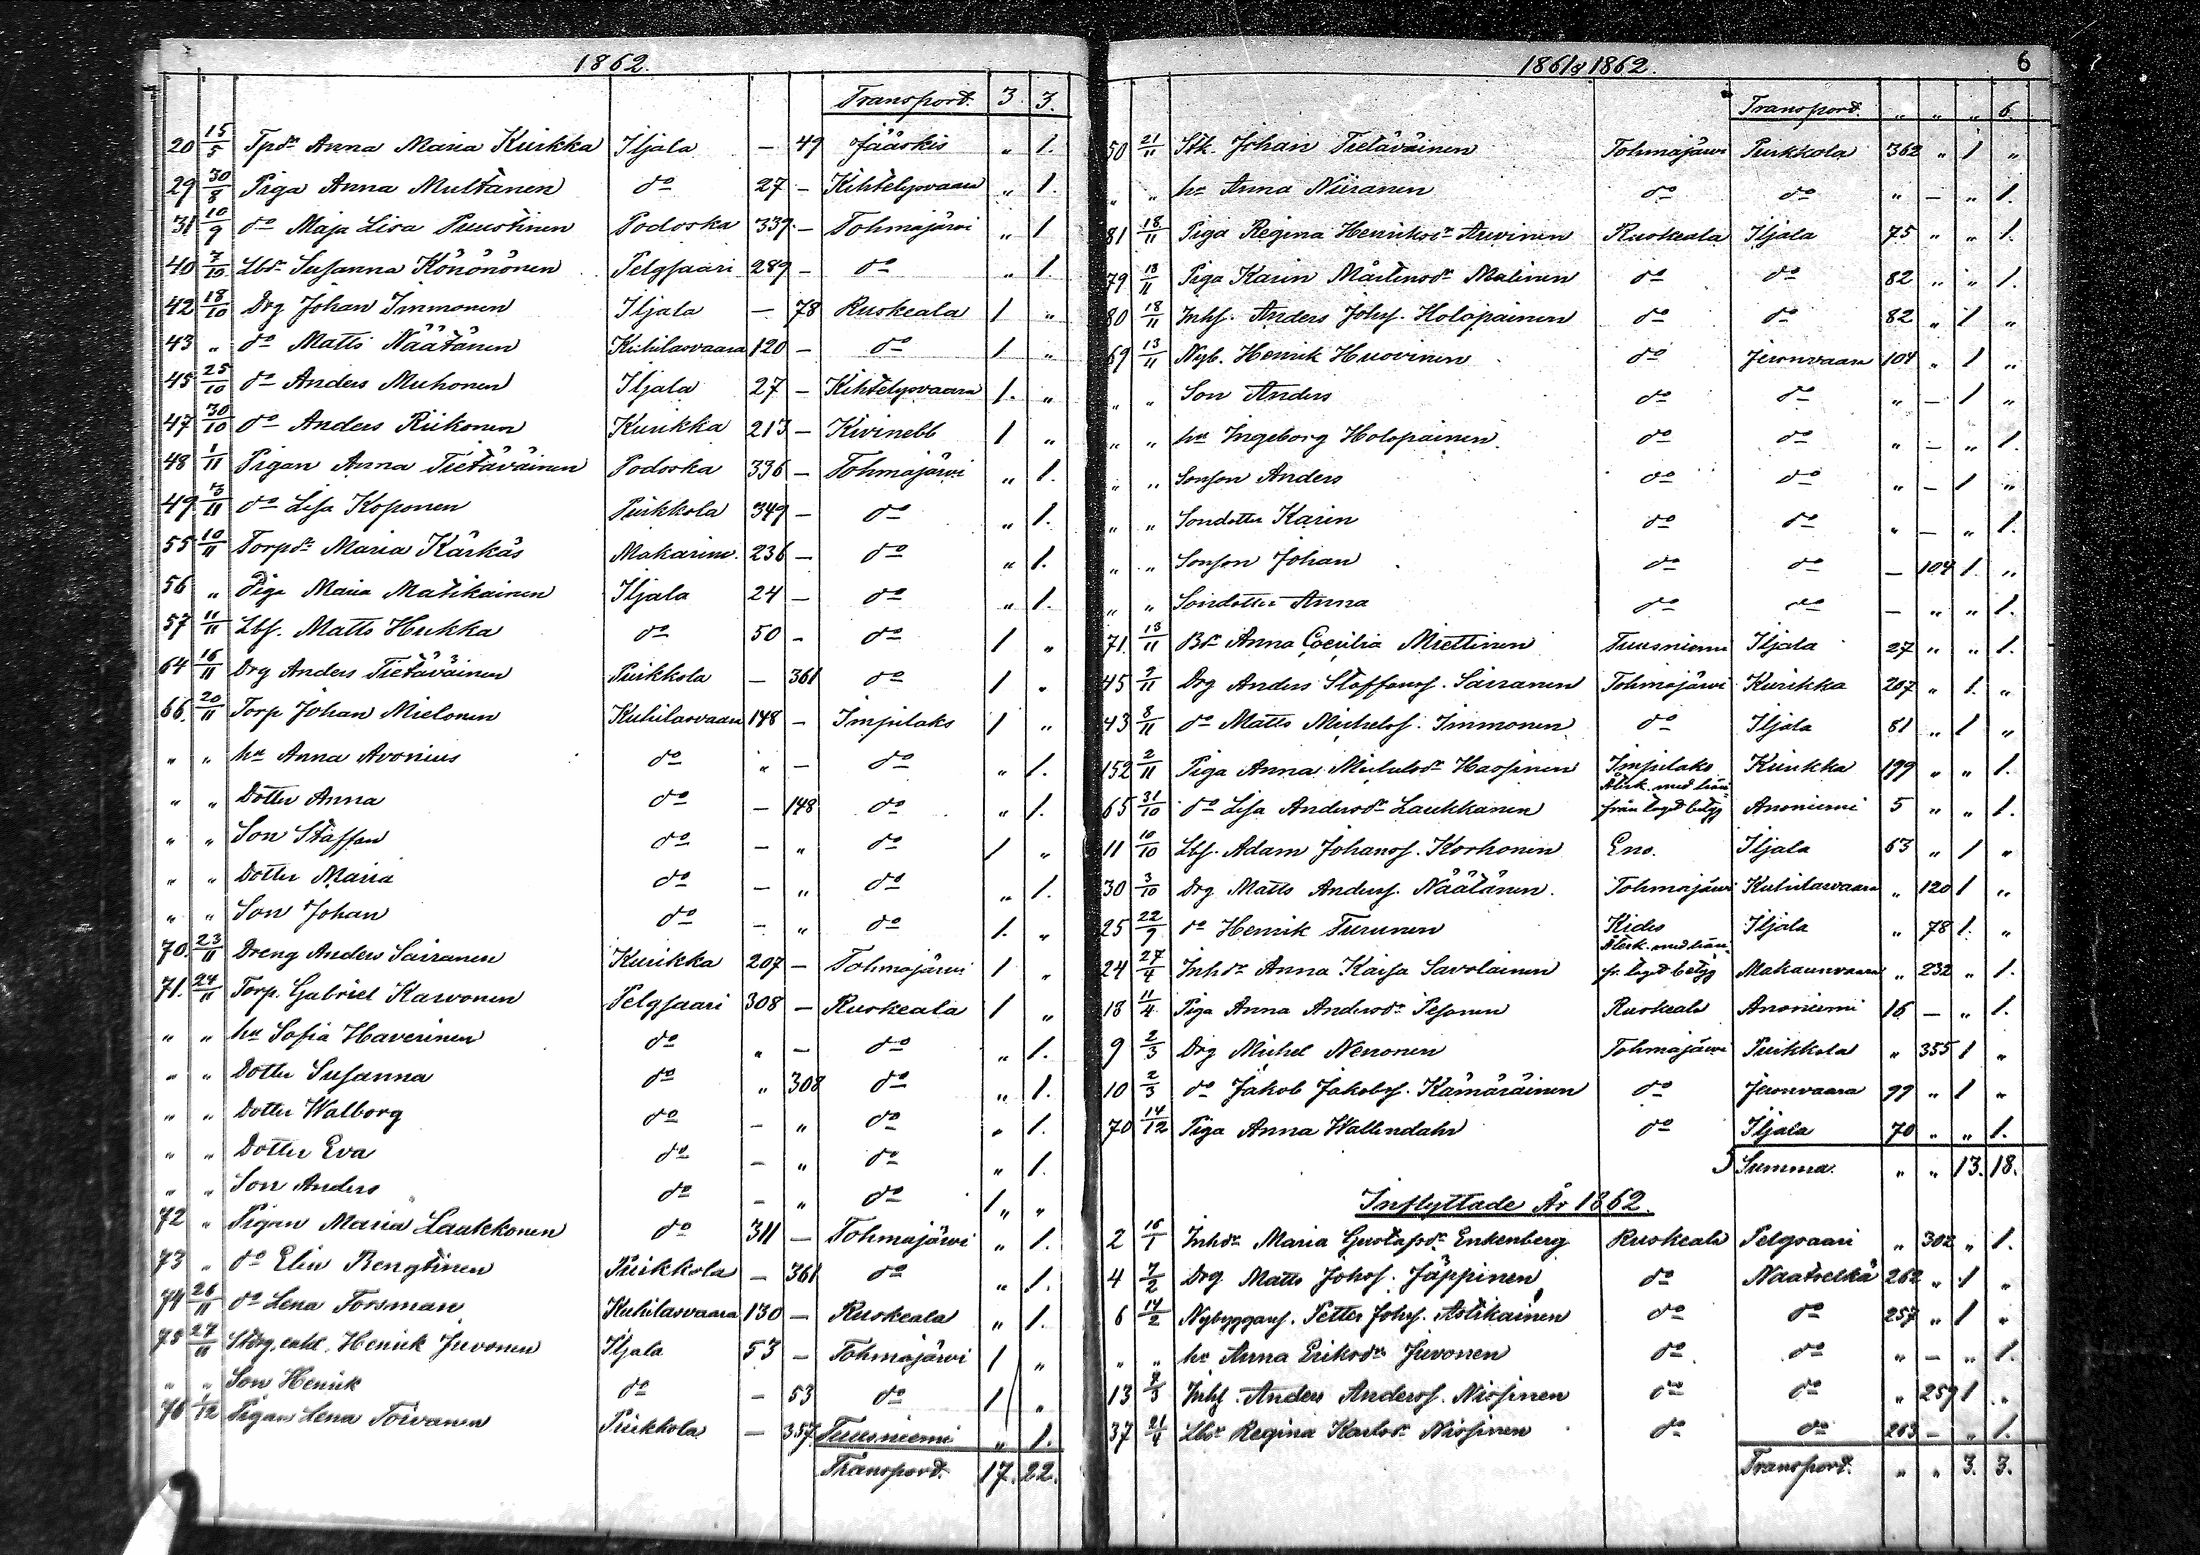 1862.
Transport. 3. 3.
20 15/5 Tpdr Anna Maria Kurikka Iljala — 49 Jääskis " 1.
29 30/8 Piga Anna Multanen do 27 — Kihtelysvaara " 1.
31 10/9 do Maja Lisa Puustinen Podoska 339 — Tohmajärvi " 1
40 7/10 Lbdr Susanna Könönönen Pelgjaari 289 — do " 1.
42 18/10 Drg Johan Immonen Iljala — 78 Ruskeala 1 "
43 " do Matts Näätänen Kuhilasvaara 120 — do 1 "
45 25/10 do Anders Muhonen Iljala 27 — Kihtelysvaara 1. "
47 30/10 do Anders Riikonen Kurikka 213 — Kivinebb 1 "
48 1/11 Pigan Anna Tietäväinen Podoska 336 — Tohmajärvi " 1.
49 3/11 do Lisa Koponen Puikkola 349 — do " 1.
55 10/11 Torpdr Maria Kärkäs Makarim. 236 — do " 1.
56 " Piga Maria Matikainen Iljala 24 — do " 1.
57 11/11 Lbf. Matts Hukka do 50 — do 1 "
64 16/11 Drg Anders Tietäväinen Puikkola — 361 do 1 "
66. 20/11 Torp Johan Mielonen Kuhilasvaara 148 — Impilaks 1 "
" " hu Anna Avonius do " — do " 1.
" " Dotter Anna do — 148 do " 1.
" " Son Staffan do — " do 1 "
" " Dotter Maria do — " do " 1.
" " Son Johan do — " do 1. "
70. 23/11 Dreng Anders Sairanen Kurikka 207 — Tohmajärvi 1 "
71. 24/11 Torp. Gabriel Karvonen Pelgjaari 308 — Ruskeala 1 "
" " hu Sofia Haverinen do " — do " 1.
" " Dotter Susanna do " 308 do " 1.
" " Dotter Walborg do — " do " 1.
" " Dotter Eva do — " do " 1.
" " Son Anders do — " do 1 "
72 " Pigan Maria Laukkonen do 311 — Tohmajärvi " 1.
73 " do Elin Bengtinen Puikkola — 361 do " 1.
74 26/11 do Lena Forsman Kuhilasvaara 130 — Ruskeala " 1.
75 27/11 Henrik Juvonen Iljala 53 — Tohmajärvi 1 "
" " Son Henrik do — 53 do 1 "
76 1/12 Pigan Lena Toivanen Puikkola — 357 Tuusniemi " 1.
Transport. 17. 22.
1861 & 1862. 6
Transport. " " " 6.
50 21/11 Stk. Johan Tietäväinen Tohmajärvi Puikkola 362 " 1 "
" " hu Anna Niiranen do do " — " 1.
81 18/11 Piga Regina Henriksdr Arvinen Ruskeala Iljala 75 " " 1.
79 13/11 Piga Karin Mårtensdr Malinen do do 82 " " 1.
80 18/11 Inhs. Anders Johs. Holopainen do do 82 " 1 "
69 13/11 Nyb. Henrik Huovinen do Jeronvaara 104 " 1 "
" " Son Anders do do " — 1 "
" " hu Ingeborg Holopainen do do " — " 1.
" " Sonson Anders do do " — 1 "
" " Sondotter Karin do do " — " 1.
" " Sonson Johan do do — 104 1. "
" " Sondotter Anna do do — " " 1.
71 13/11 Bdr Anna Coecilia Miettinen Tuusniemi Iljala 27 " " 1.
45 9/11 Drg Anders Staffans. Sairanen Tohmajärvi Kurikka 207 " 1. "
43 8/11 do Matts Michels. Immonen do Iljala 81 " 1 "
152 2/11 Piga Anna Michelsdr Hassinen Impilaks Kurikka 199 " " 1.
65 31/10 do Lisa Andersdr Laukkanen Återk. med från taget betyg Anoniemi 5 " " 1.
11 10/10 Lbs. Adam Johans. Korhonen Eno. Iljala 63 " 1 "
30 3/10 Drg Matts Anders. Näätänen Tohmajärvi Kuhilasvaara " 120 1 "
25 22/9 do Henrik Turunen Kides Iljala " 78 1. "
24 27/4 Inhdr Anna Kaisa Savolainen Återk. med från fr. taget betyg Makarinvaara " 232 " 1.
13 11/4 Piga Anna Andersdr Pesonen Ruskeala Anoniemi 16 — " 1.
9 2/3 Drg Michel Nenonen Tohmajärvi Puikkola " 355 1 "
10 2/3 do Jakob Jakobs. Kämäräinen do Jeronvaara 99 " 1 "
70 14/12 Piga Anna Wallendahr do Iljala 70 " " 1.
Summa. " " 13. 18.
Inflyttade År 1862.
2 16/1 Inhdr Maria Gustafsdr Enkenberg Ruskeala Pelgsaari " 302 " 1.
4 7/2 Drg Matts Johs. Jäppinen do Naatselkä 262 " 1 "
6 14/2 Nybyggars. Petter Johs. Astikainen do do 257 " 1 "
" " hu Anna Eriksdr Juvonen do do " — " 1.
13 9/3 Inhs. Anders Anders. Nissinen do do " 259 1 "
37 21/4 Lbdr Regina Karlsdr Nissinen do do 263 — " 1.
Transport. " " 3. 3.